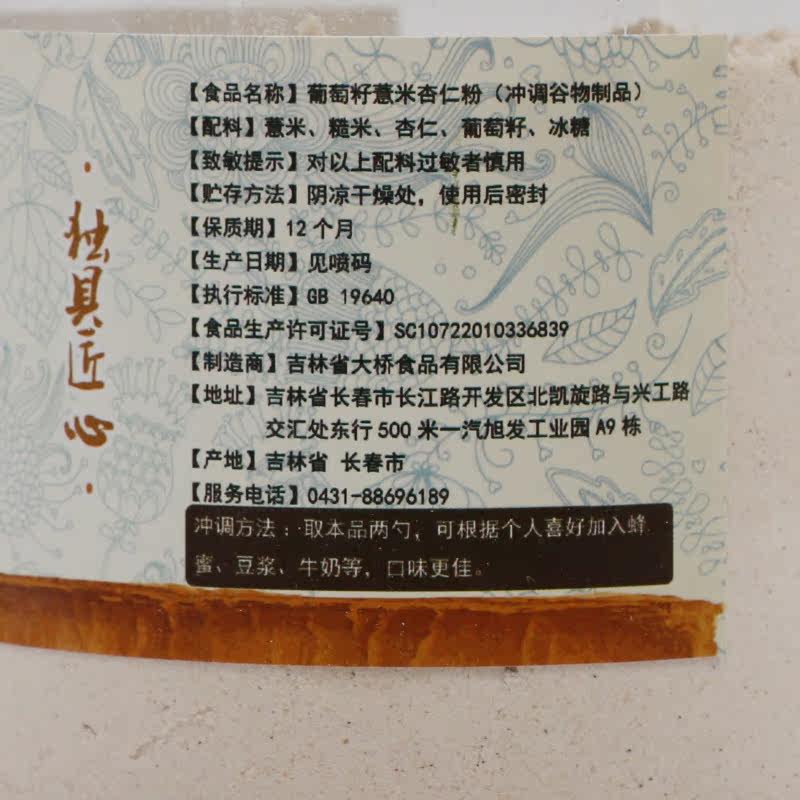 ·独具匠心·
【食品名称】葡萄籽薏米杏仁粉（冲调谷物制品）
【配料】薏米、糙米、杏仁、葡萄籽、冰糖
【致敏提示】对以上配料过敏者慎用
【贮存方法】阴凉干燥处，使用后密封
【保质期】12个月
【生产日期】见喷码
【执行标准】GB 19640
【食品生产许可证号】SC10722010336839
【制造商】吉林省大桥食品有限公司
【地址】吉林省长春市长江路开发区北凯旋路与兴工路
交汇处东行500米一汽旭发工业园A9栋
【产地】吉林省 长春市
【服务电话】0431-88696189
冲调方法：取本品两勺，可根据个人喜好加入蜂
蜜、豆浆、牛奶等，口味更佳。